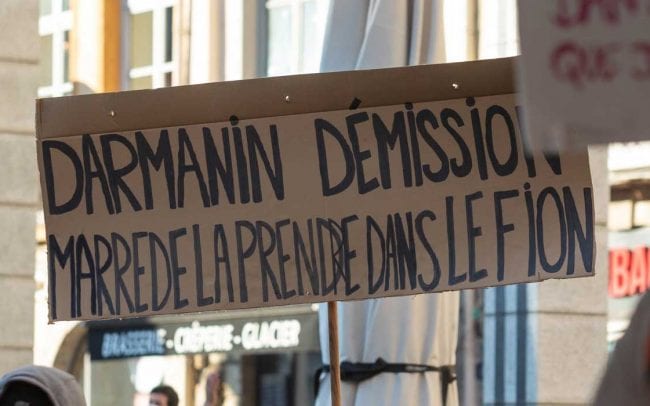 DARMANIN DÉMISSION
MARRE DE LA PRENDRE DANS LE FION
QUE
BRASSERIE - CRÊPERIE - GLACIER